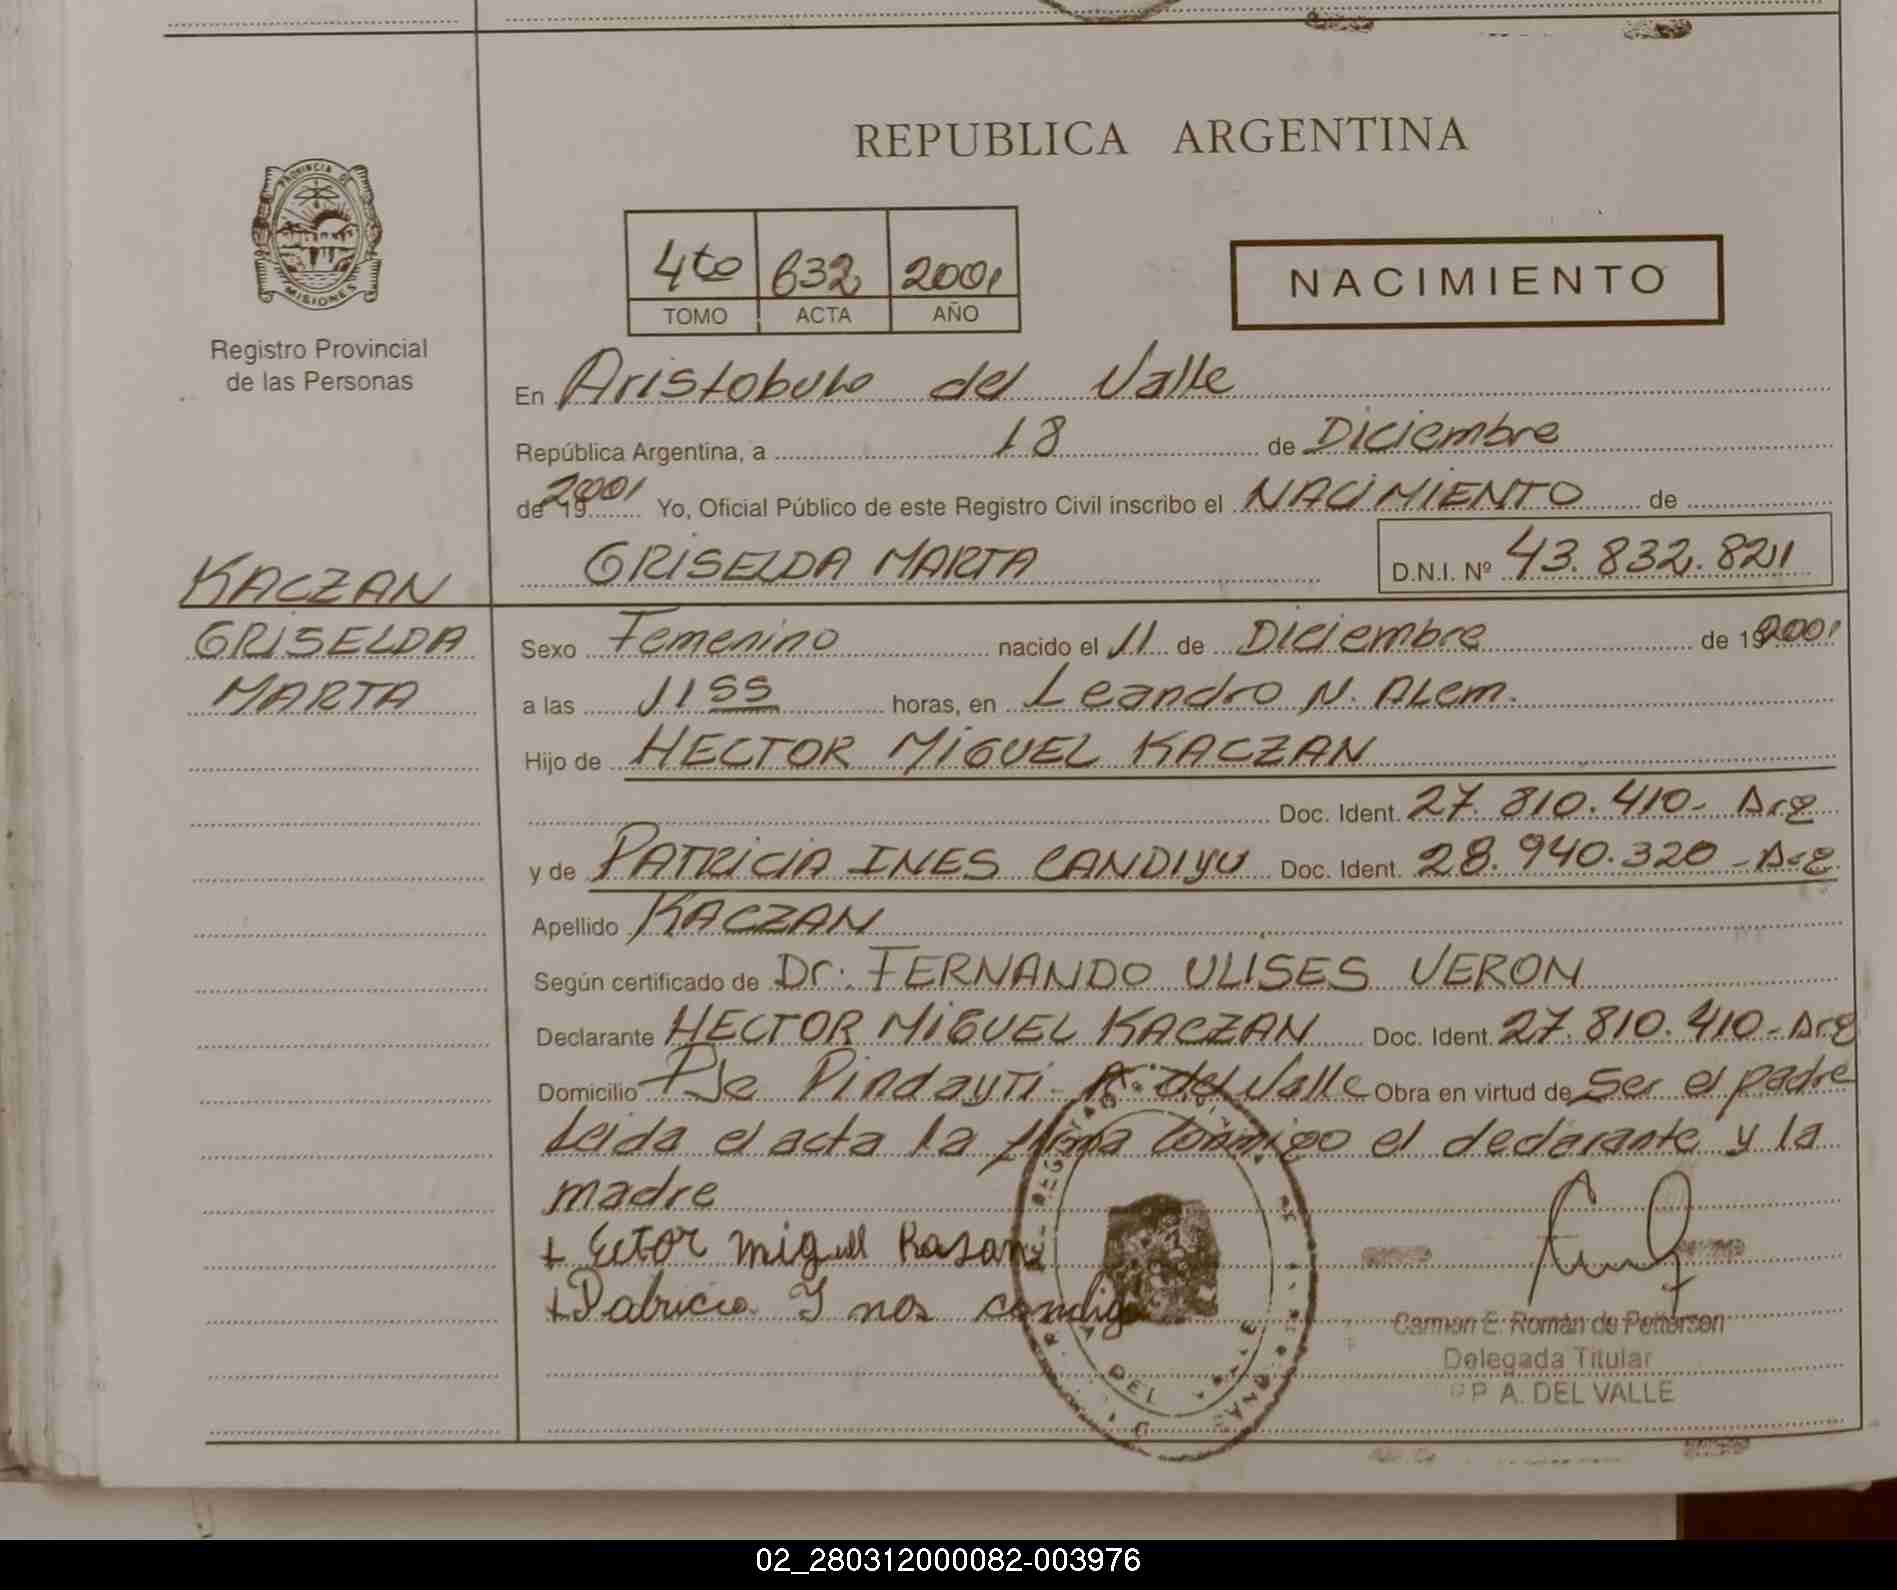 REPUBLICA ARGENTINA
PROVINCIA DE
MISIONES
Registro Provincial
de las Personas
4to 632 2001
TOMO ACTA AÑO
NACIMIENTO
En Aristobulo del Valle
República Argentina, a 18 de Diciembre
de 19 2001 Yo, Oficial Público de este Registro Civil inscribo el NACIMIENTO de
GRISELDA MARTA D.N.I. Nº 43.832.821
KACZAN
GRISELDA
MARTA
Sexo Femenino nacido el 11 de Diciembre de 19 2001
a las 11 55 horas, en Leandro N. ALem.
Hijo de HECTOR MIGUEL KACZAN
Doc. Ident. 27.810.410- Arg
y de PATRICIA INES CANDIYU Doc. Ident. 28.940.320 - Arg
Apellido KACZAN
Según certificado de Dr. FERNANDO ULISES VERON
Declarante HECTOR MIGUEL KACZAN Doc. Ident. 27.810.410- Arg
Domicilio Pje Pindayti - A. del Valle Obra en virtud de Ser el padre
Leida el acta la firma conmigo el declarante y la
madre
+ Ector miguel Kasan
+ Patricia I nes candig
DEL
Carmen E. Román de Petterson
Delegada Titular
R.P.P. A. DEL VALLE
02_280312000082-003976